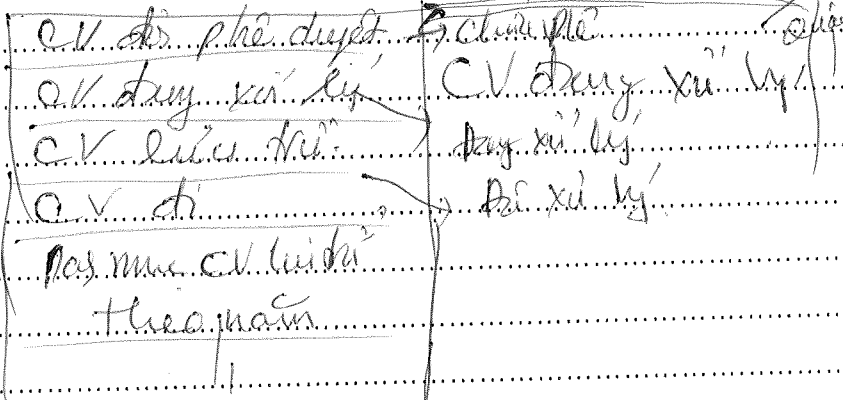 CV đã phê duyệt
CV đang xử lý
CV lưu trữ
CV đi
Danh mục CV lưu trữ
theo năm
chưa phê
CV đang xử lý
Đang xử lý
Đã xử lý